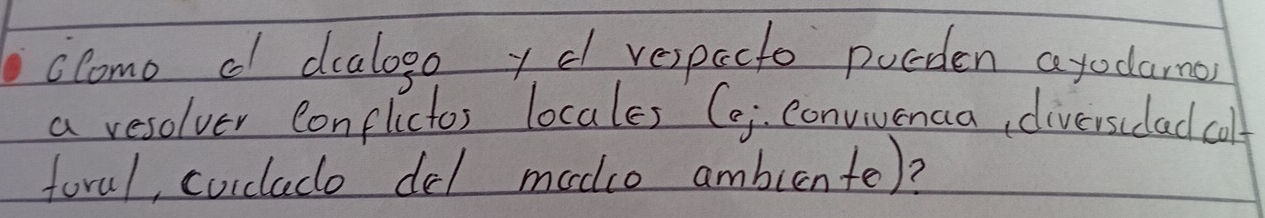 ¿Como el dialogo y el respecto pueden ayodarnos
a resolver conflictos locales (ej. convivencia, diversidad cul-
tural, cuidado del medio ambiente)?